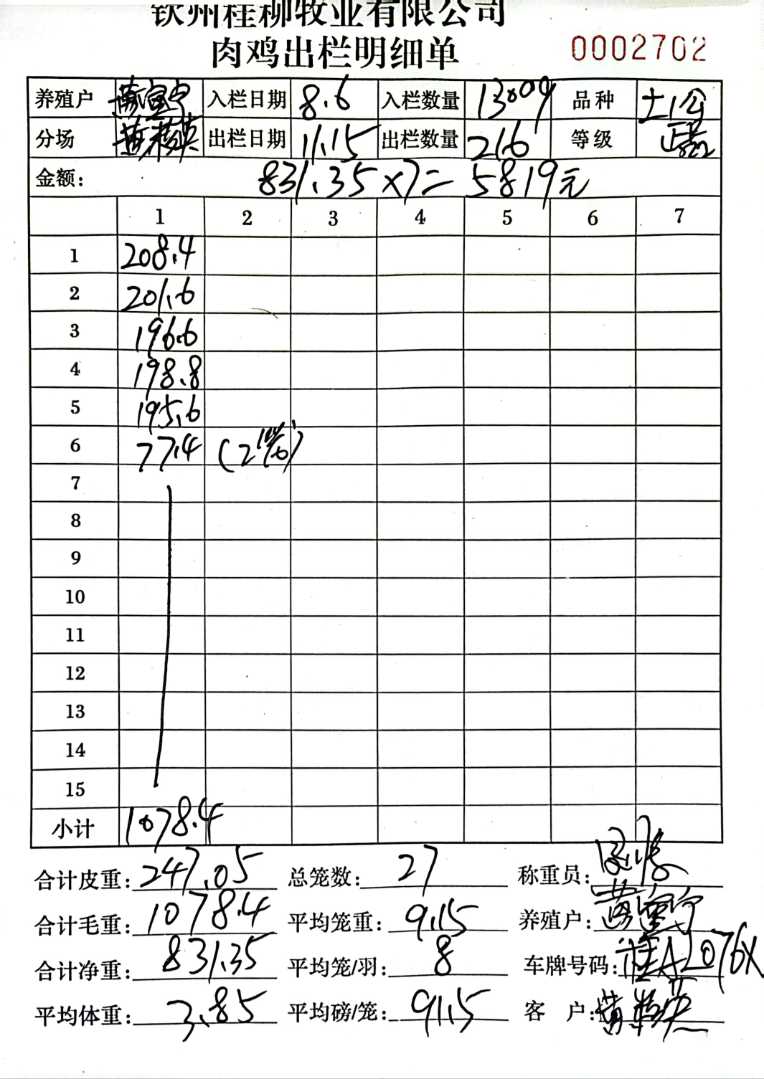 钦州桂柳牧业有限公司
肉鸡出栏明细单 0002702
养殖户 入栏日期 8.6 入栏数量 13009 品种 土1公
分场 出栏日期 11.15 出栏数量 216 等级
金额: 831.35×7=5819元
1 2 3 4 5 6 7
1 208.4
2 201.6
3 196.6
4 198.8
5 195.6
6 77.4
7
8
9
10
11
12
13
14
15
小计 1078.4
合计皮重: 247.05 总笼数: 27 称重员:
合计毛重: 1078.4 平均笼重: 9.15 养殖户:
合计净重: 831.35 平均笼/羽: 8 车牌号码: 桂A2076X
平均体重: 3.85 平均磅/笼: 91.5 客 户: